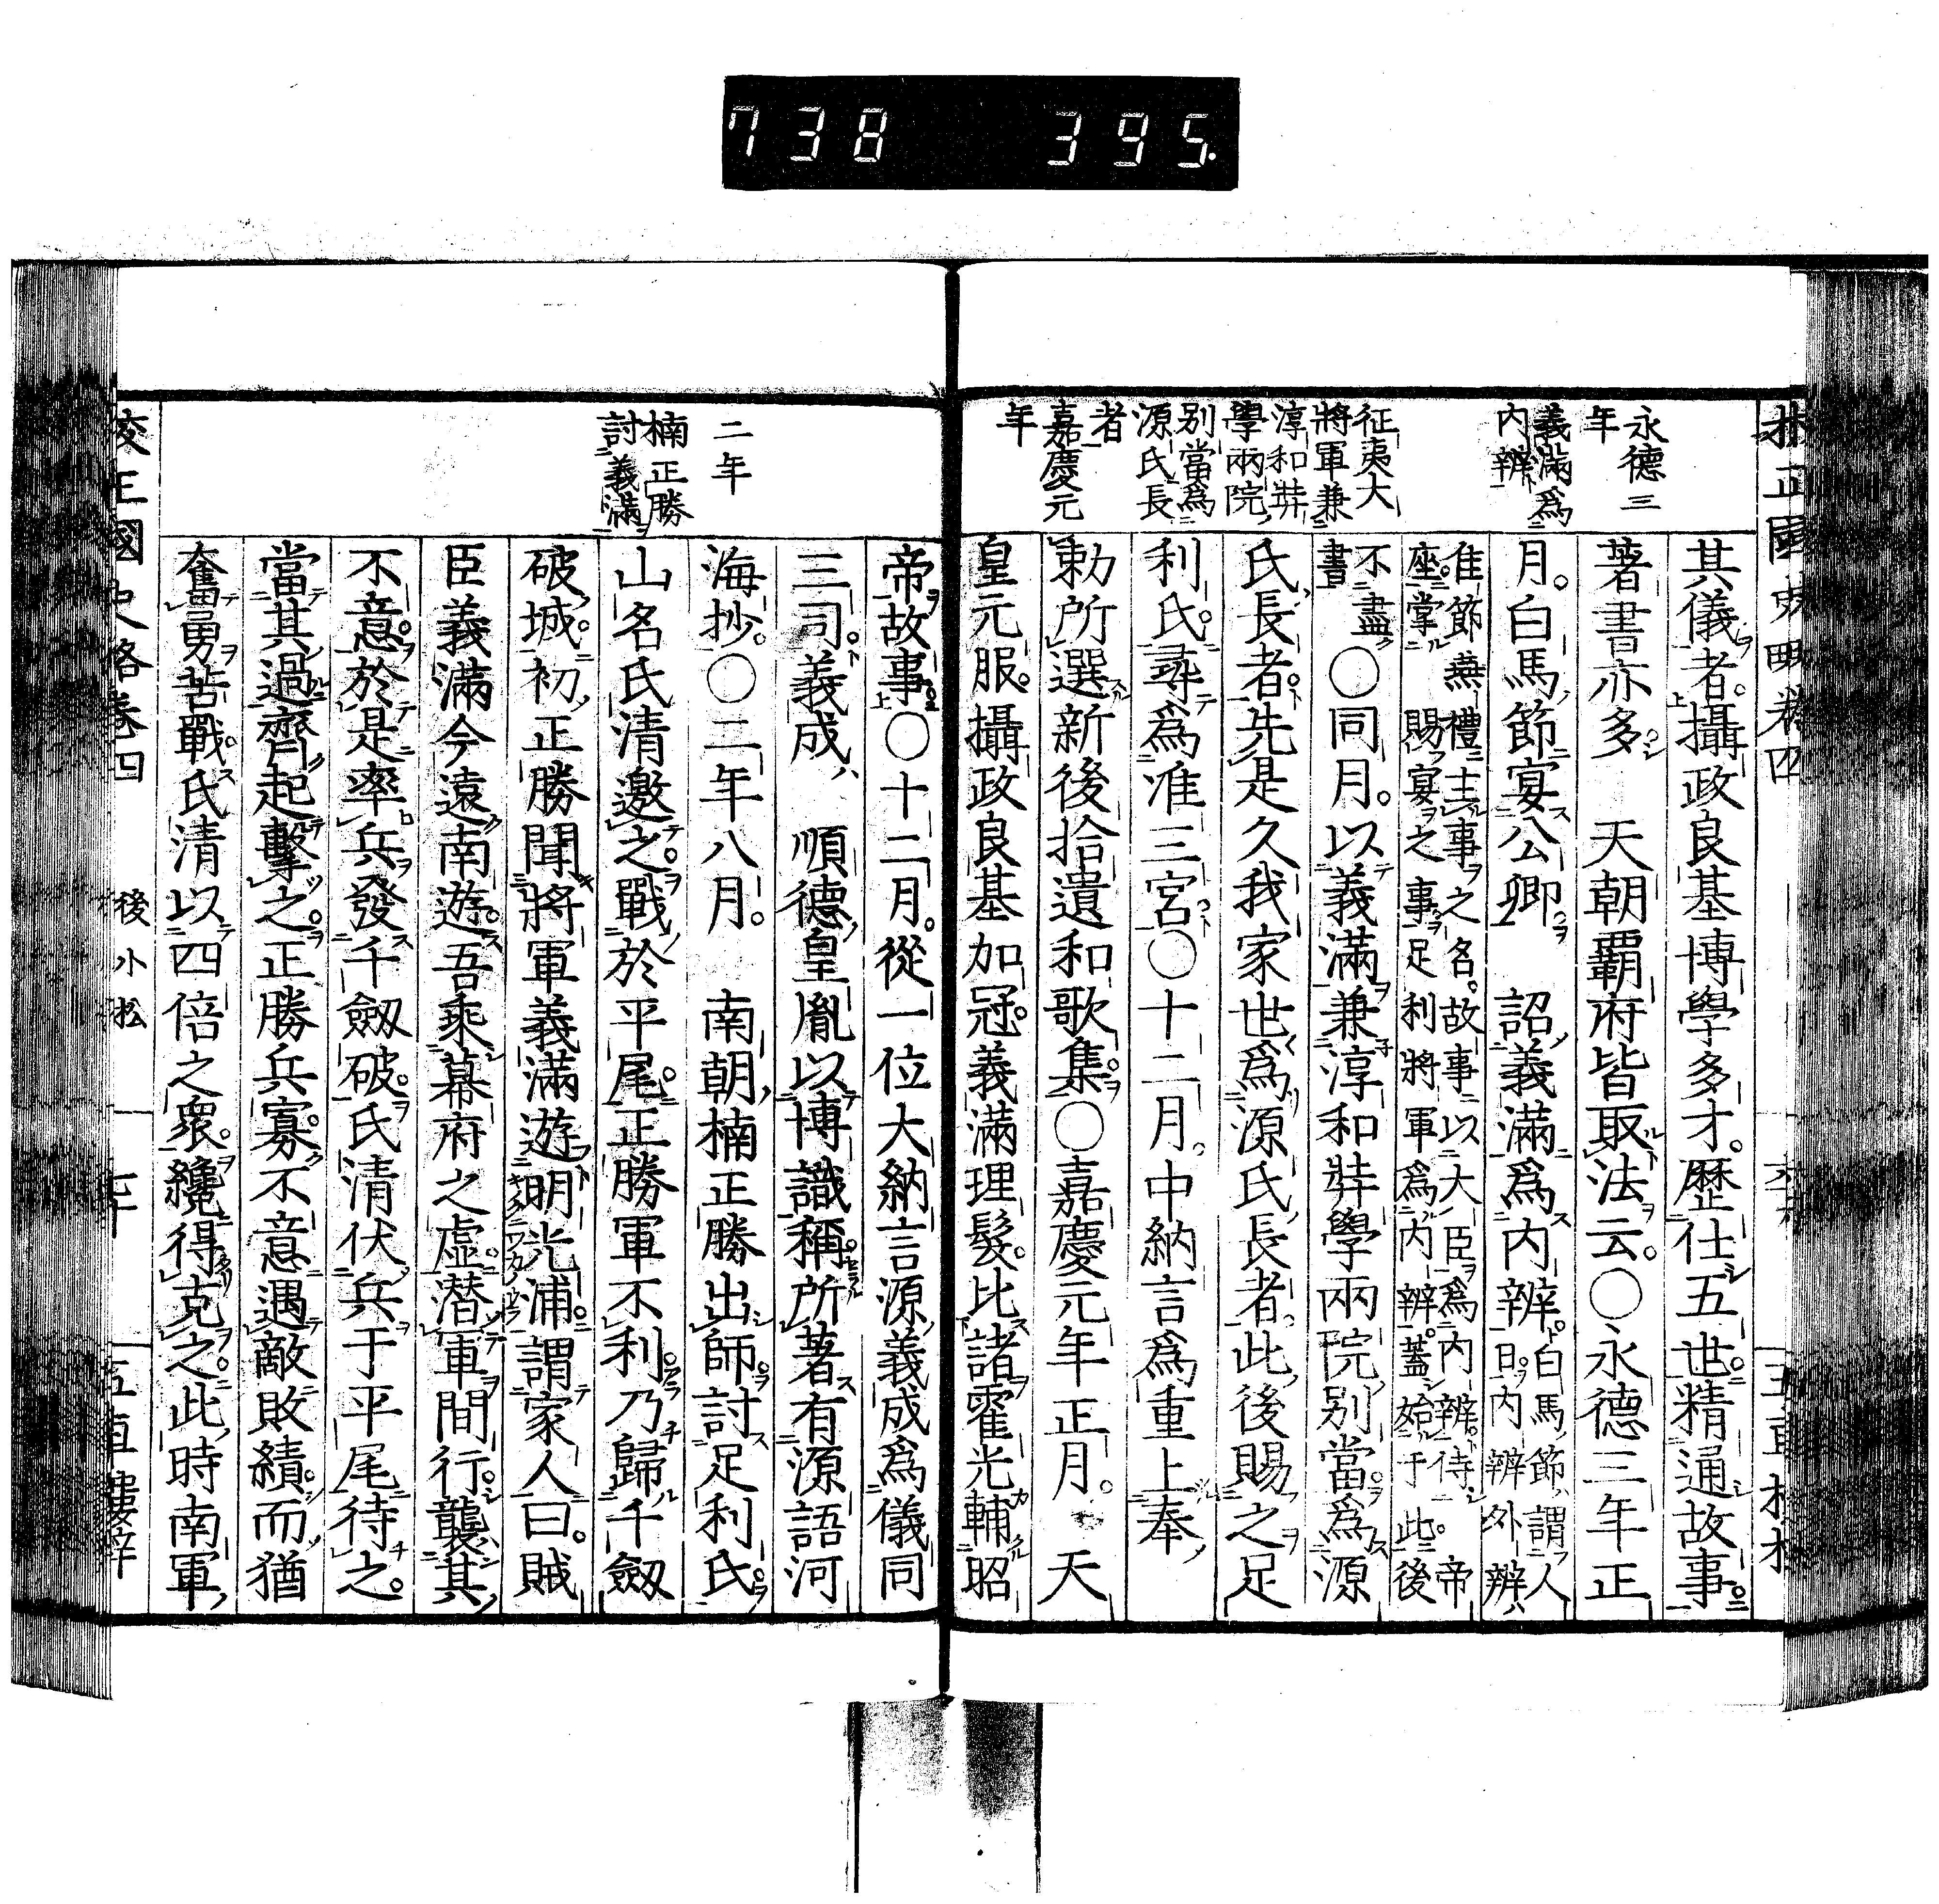 738 395.
永德三
年
義滿爲
内辨
征夷大
將軍兼
淳和奘
學兩院
別當爲
源氏長
者
嘉慶元
年
其儀者。攝政良基博學多才。歷仕五世。精通故事。
著書亦多。天朝覇府皆取法云。○永德三年正
月。白馬節宴公卿。詔義滿爲内辨。白馬節、謂人
日。内辨外辨、
隹節無禮主事之名。故事以大臣爲内辨。侍帝
座。掌賜宴之事。足利將軍爲内辨。蓋始于此。後
不盡
書
○同月。以義滿兼淳和奘學兩院別當。爲源
氏長者。先是久我家世爲源氏長者。此後賜之足
利氏。尋爲准三宮○十二月。中納言爲重上奉
勅所選新後拾遺和歌集。○嘉慶元年正月。天
皇元服。攝政良基加冠。義滿理髮。比諸霍光輔昭
二年
楠正勝
討義滿
帝故事。○十二月。從一位大納言源義成爲儀同
三司。義成、順德皇胤以博識稱。所著有源語河
海抄。○二年八月。南朝楠正勝出師。討足利氏。
山名氏清邀之。戰於平尾。正勝軍不利。乃歸千劔
破城。初正勝聞將軍義滿遊明光浦。謂家人曰。賊
臣義滿今遠南遊。吾乘幕府之虛。潛軍間行。襲其
不意。於是率兵發千劔破。氏清伏兵于平尾待之。
當其過齊起擊之。正勝兵寡。不意遇敵敗績。而猶
奮勇苦戰。氏清以四倍之衆。纔得克之。此時南軍
後小松